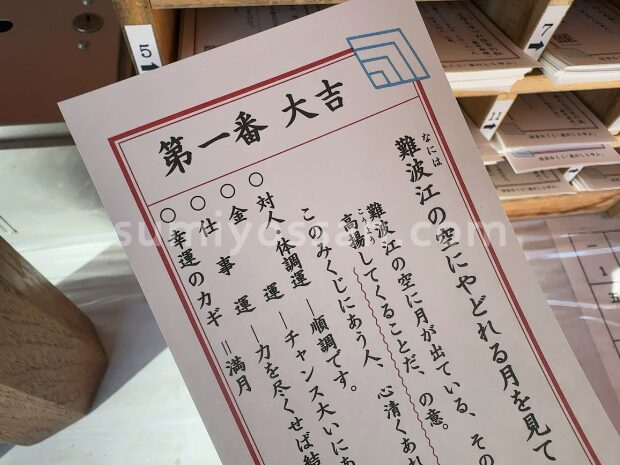 第一番 大吉
難波江の空にやどれる月を見て
なには
難波江の空に月が出ている、その
高揚してくることだ、の意。
こうよう
このみくじにあう人、心清くあれ
体調運 ―順調です。
対人運 ―チャンス大いにあ
金運 ―力を尽くせば結
仕事運
幸運のカギ=満月
5
7
11
sumiyossan.com